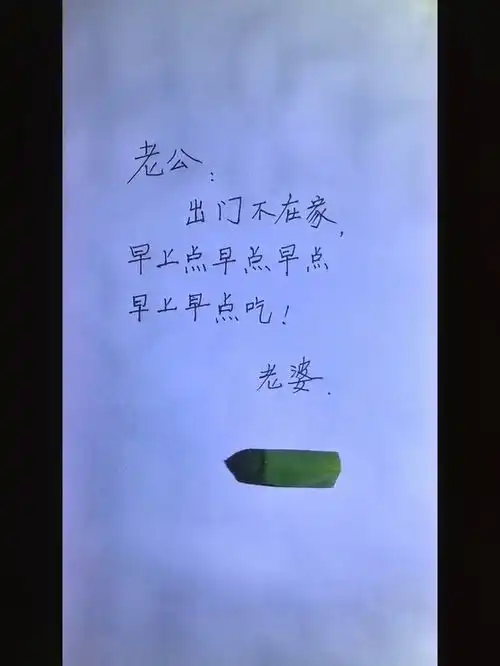 老公：
出门不在家，
早上点早点早点
早上早点吃！
老婆.